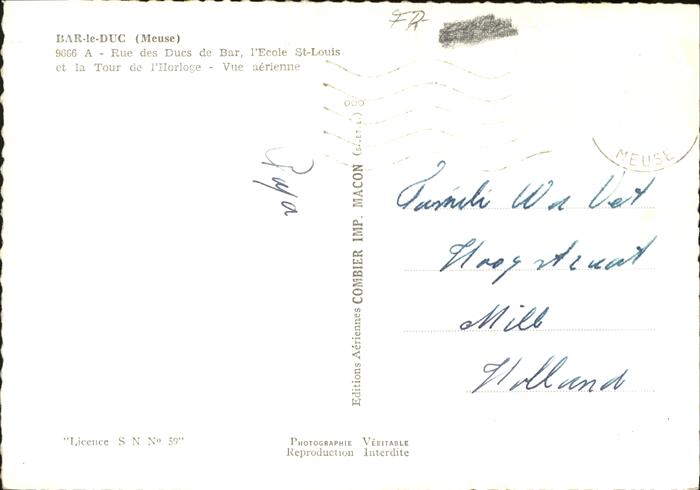 BAR-le-DUC (Meuse)
9666 A - Rue des Ducs de Bar, l'Ecole St-Louis
et la Tour de l'Horloge - Vue aérienne
FR
MEUSE
Papa
Editions Aériennes COMBIER IMP. MACON (S.-ET-L.)
Famili
Hoogstraat
Mill
Holland
"Licence S N Nº 59"
PHOTOGRAPHIE VÉRITABLE
Reproduction Interdite